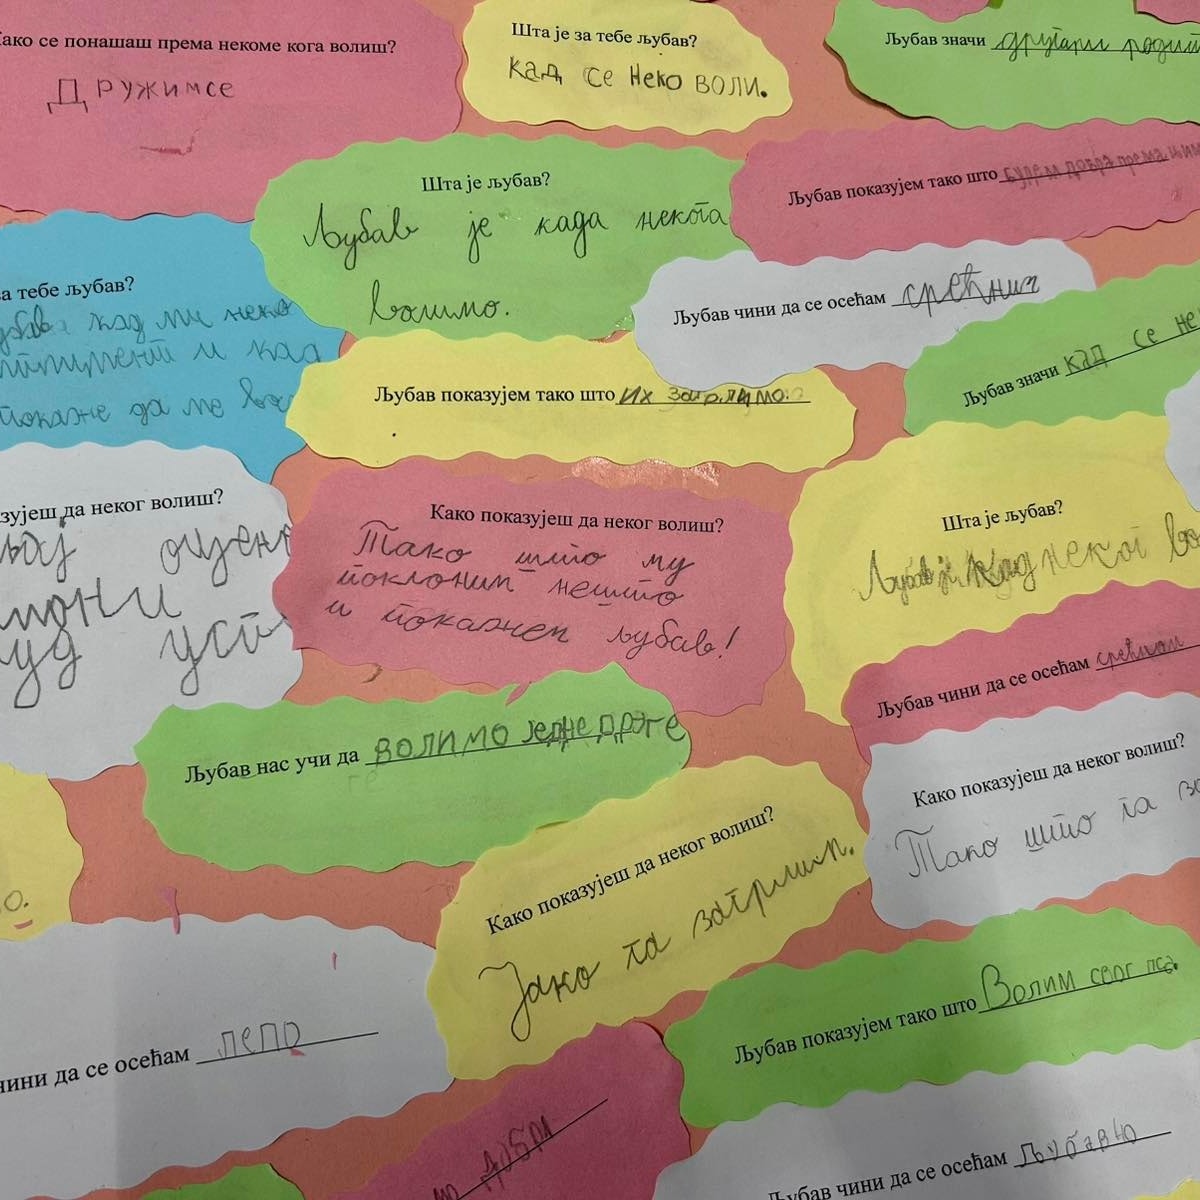 Како се понашаш према некоме кога волиш?
Дружимсе
Шта је за тебе љубав?
кад се неко воли.
Љубав значи другари
Шта је љубав?
Љубав је када некога
волимо.
Љубав показујем тако што будем добра према
за тебе љубав?
кад ми неко
и кад
покаже да ме
Љубав чини да се осећам срећним
Љубав значи кад се
Љубав показујем тако што их загрлимо.
да неког волиш?
Како показујеш да неког волиш?
Тако што му
поклоним нешто
и покажем љубав!
Шта је љубав?
Љубав је кад неког
Љубав чини да се осећам срећном
Љубав нас учи да волимо једне друге
Како показујеш да неког волиш?
Тако што га
Како показујеш да неког волиш?
Јако га загрлим.
чини да се осећам лепо
Љубав показујем тако што Волим свог пса.
Љубав чини да се осећам